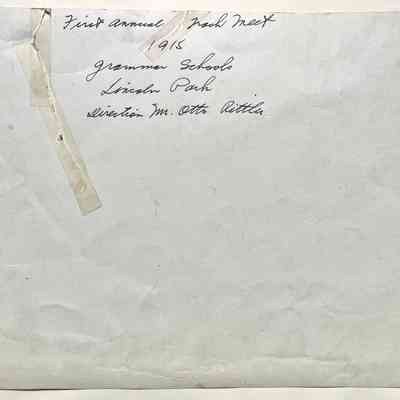 First Annual Track Meet
1915
Grammar Schools
Lincoln Park
Direction Mr. Otto Rittler